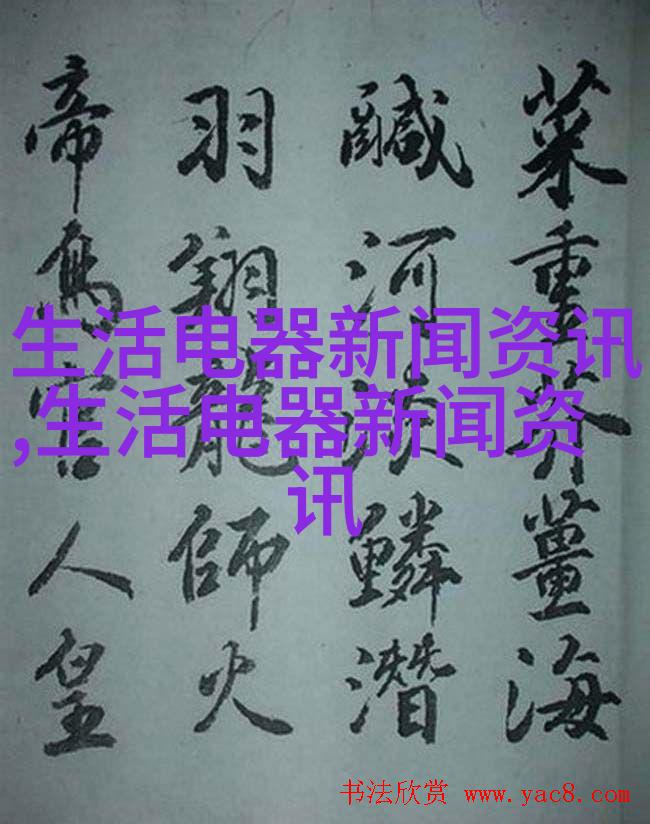 菜重芥薑海
鹹河淡鱗潛
羽翔龍師火
帝鳥官人皇
生活电器新闻资讯
,生活电器新闻资
讯
书法欣赏 www.yac8.com